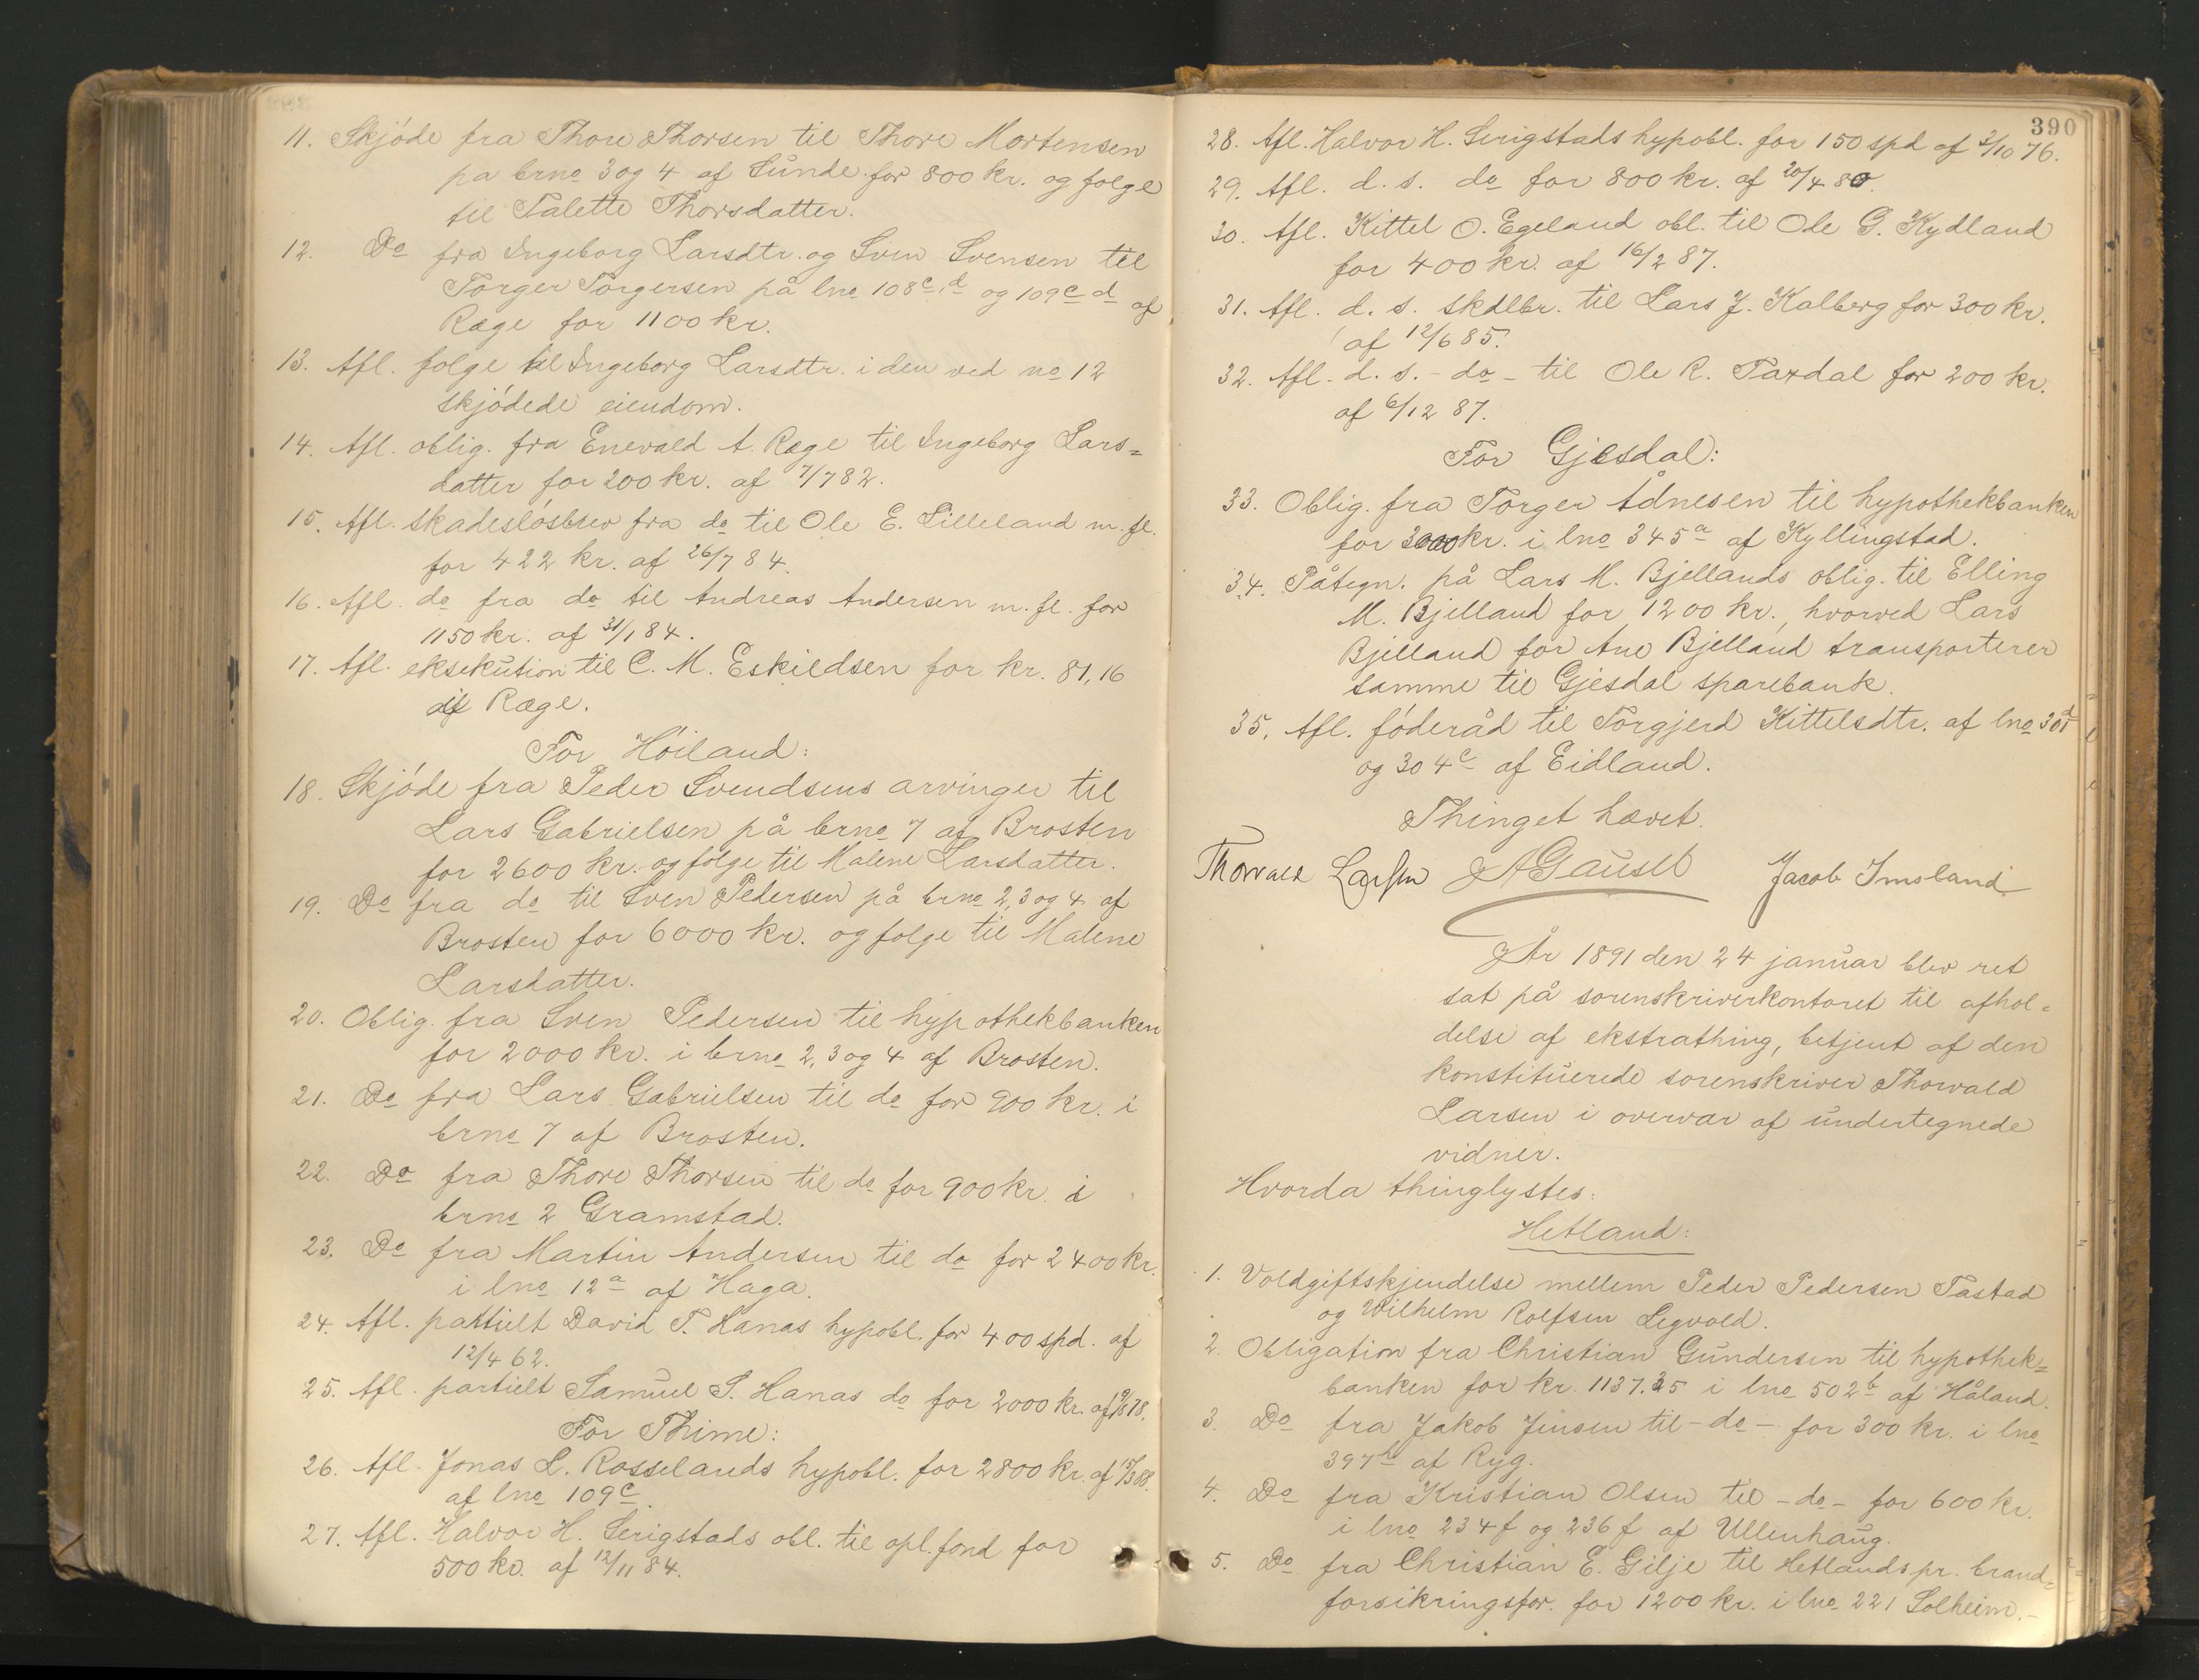 11. Skjøde fra Thore Thorsen til Thore Mortensen
på brno 3 og 4 af Sunde for 800 kr. og følge
til Talette Thorsdatter.
12. Do fra Ingeborg Larsdtr. og Sven Svensen til
Torger Torgersen på lno 108c,d og 109c d af
Ræge for 1100 kr.
13. Afl. følge til Ingeborg Larsdtr. i den ved no 12
skjødede eiendom.
14. Afl. oblig. fra Enevald A. Ræge til Ingeborg Lars=
datter for 200 kr. af 7/7 82.
15. Afl. skadesløsbrev fra do til Ole E. Lilleland m. fl.
for 422 kr. af 26/7 84.
16. Afl. do fra do til Andreas Andersen m. fl. for
1150 kr. af 31/1 84.
17. Afl. eksekution til C. M. Eskildsen for kr. 81,16
af Ræge.
For Høiland:
18. Skjøde fra Peder Svendsens arvinger til
Lars Gabrielsen på brno 7 af Brosten
for 2600 kr. og følge til Malene Larsdatter.
19. Do fra do til Sven Pedersen på brno 2, 3 og 4 af
Brosten for 6000 kr. og følge til Malene
Larsdatter.
20. Oblig. fra Sven Pedersen til hypothekbanken
for 2000 kr. i brno 2, 3 og 4 af Brosten.
21. Do fra Lars Gabrielsen til do for 900 kr. i
brno 7 af Brosten.
22. Do fra Thore Thorsen til do for 900 kr. i
brno 2 Gramstad.
23. Do fra Martin Andersen til do for 2400 kr.
i lno 12a af Haga.
24. Afl. partielt David T. Hanas hypobl. for 400 spd. af
12/4 62.
25. Afl. partielt Samuel S. Hanas do for 2000 kr. af 78.
For Thime:
26. Afl. Jonas L. Rosselands hypobl. for 2800 kr. af 15/3 88.
af lno 109c.
27. Afl. Halvor H. Serigstads obl. til opl.fond for
500 kr. af 12/11 84.
390
28. Afl. Halvor H. Serigstads hypobl. for 150 spd af 2/10 76.
29. Afl. d. s. do for 800 kr. af 20/4 80.
30. Afl. Kittel O. Egeland obl. til Ole G. Kydland
for 400 kr. af 16/2 87.
31. Afl. d. s. skdlbr. til Lars J. Kalberg for 300 kr.
af 12/6 85.
32. Afl. d. s. - do - til Ole R. Taxdal for 200 kr.
af 6/12 87.
For Gjesdal:
33. Oblig. fra Torger Ådnesen til hypothekbanken
for 3000 kr. i lno 345a af Kyllingstad.
34. Påtegn. på Lars M. Bjellands oblig. til Elling
M. Bjelland for 1200 kr., hvorved Lars
Bjelland for Ane Bjelland transporterer
samme til Gjesdal sparebank.
35. Afl. føderåd til Torgjerd Kittelsdtr. af lno 301d
og 304c af Eidland.
Thinget hævet.
Thorvald Larsen A Gausel Jacob Imsland
År 1891 den 24 januar blev ret
sat på sorenskriverkontoret til afhol=
delse af ekstrathing, betjent af den
konstituerede sorenskriver Thorvald
Larsen i overvær af undertegnede
vidner.
Hvorda thinglystes:
Hetland:
1. Voldgiftskjendelse mellem Peder Pedersen Tastad
og Wilhelm Rolfsen Legvold.
2. Obligation fra Christian Gundersen til hypothek=
banken for kr. 1137.35 i lno 502b af Håland.
3. Do fra Jakob Jensen til - do - for 300 kr. i lno
397h af Ryg.
4. Do fra Kristian Olsen til - do - for 600 kr.
i lno 234f og 236f af Ullenhaug.
5. Do fra Christian E. Gilje til Hetlands pr. brand=
forsikringsfor. for 1200 kr. i lno 221 Solheim. -